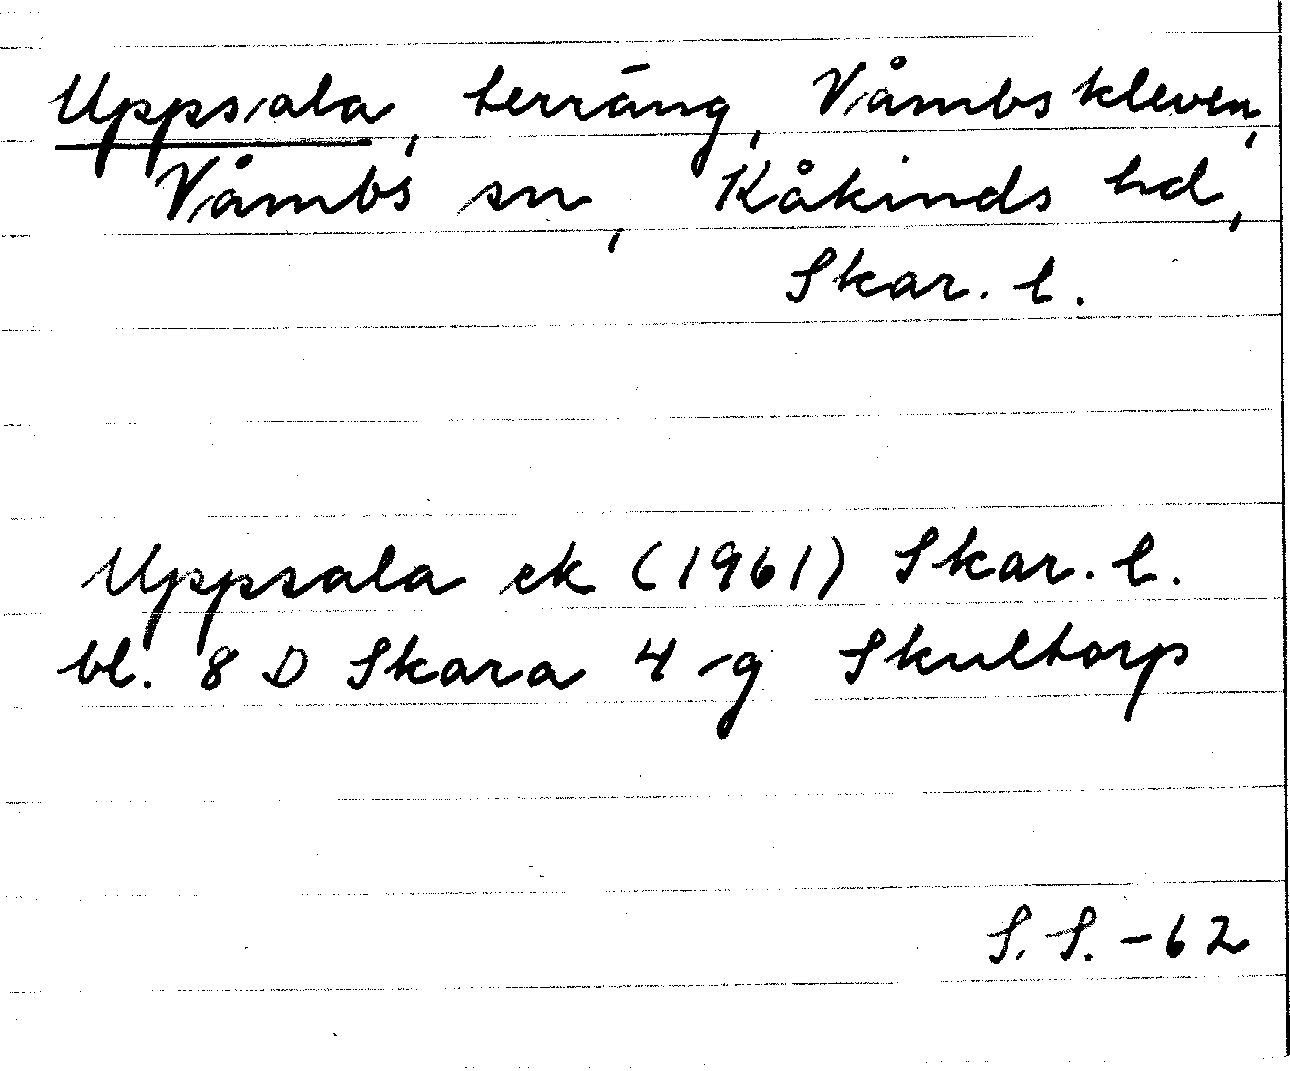 Uppsala, terräng, Våmbskleven,
Våmbs sn, Kåkinds hd,
Skar. l.
Uppsala ek (1961) Skar. l.
bl. 8 D Skara 4-g Skultorp
S. S. -62